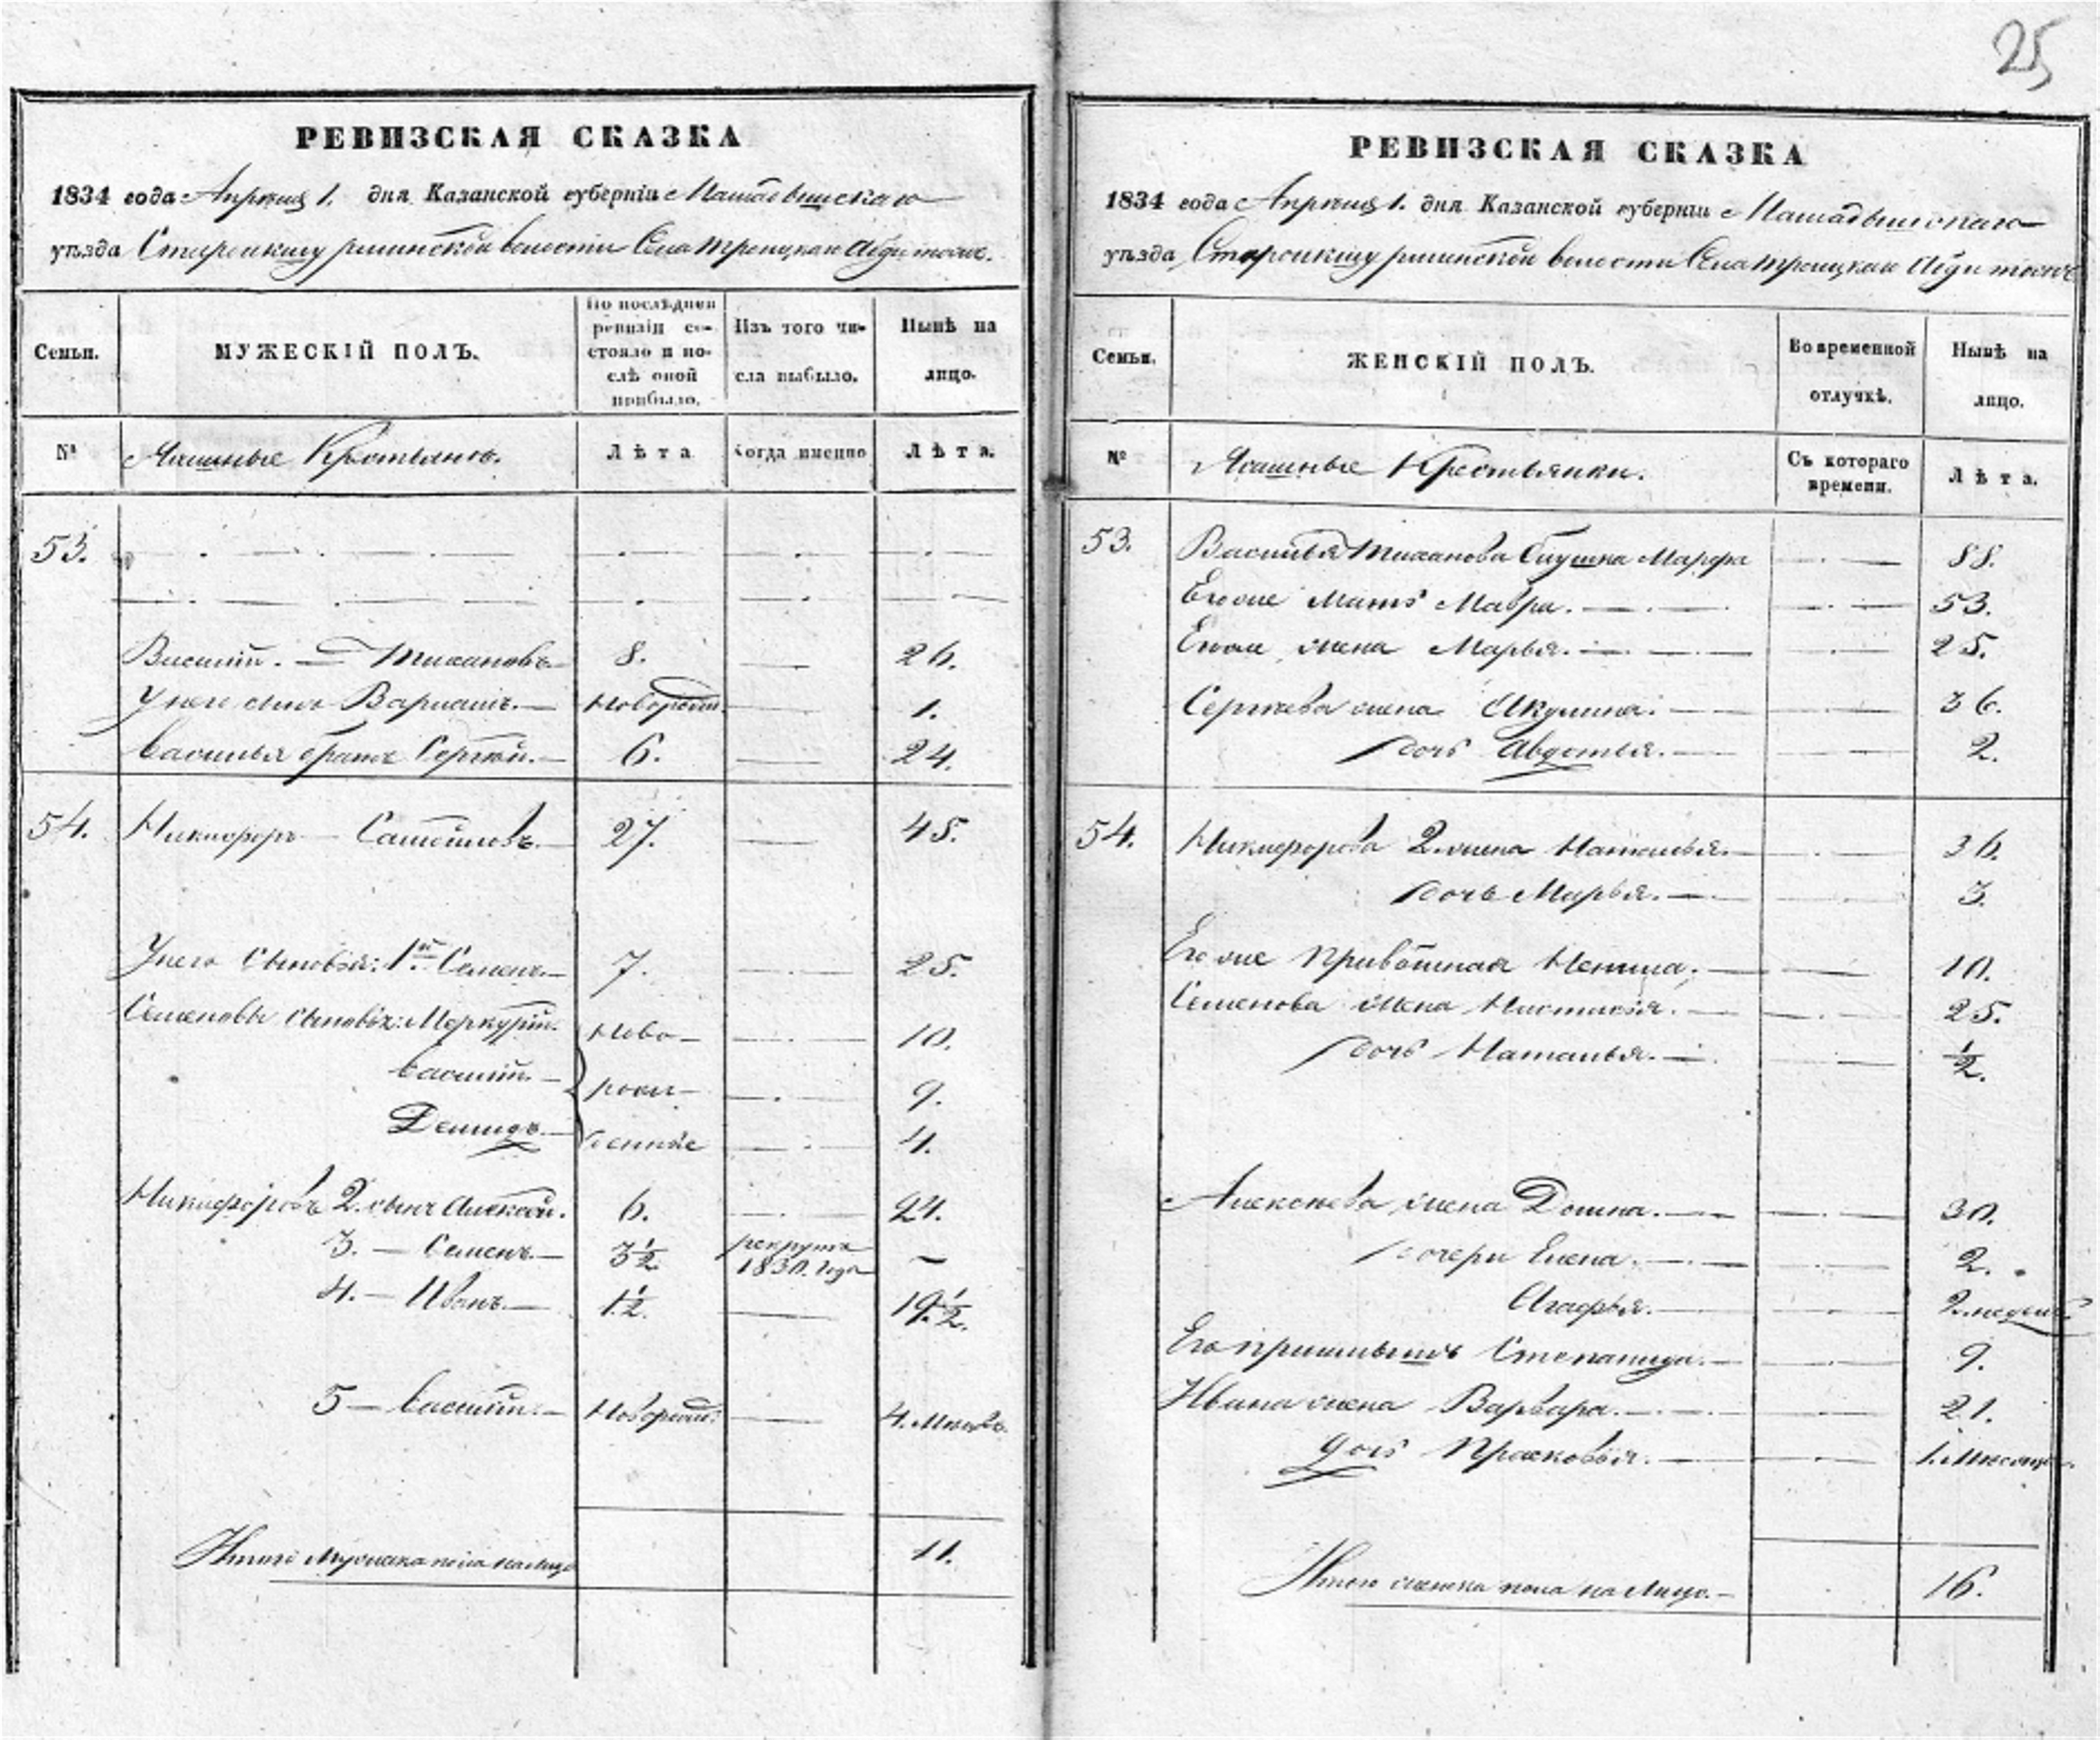 25
РЕВИЗСКАЯ СКАЗКА
1834 года Апреля 1. дня Казанской губерніи Мамадышскаго
уѣзда Старо волости Села Троицкаго
Семьи. МУЖЕСКІЙ ПОЛЪ. По послѣдней ревизіи состояло и послѣ оной прибыло. Изъ того числа выбыло. Нынѣ на лицо.
№ Ясашные Крестьяне. Лѣта Когда именно Лѣта.
53.
Василий Тихановъ 8. 26.
У него сынъ Новорожд. 1.
Василья братъ Сергѣй. 6. 24.
54. Никифоръ 27. 45.
У него Сыновья: 1й Семенъ 7. 25.
Семеновы сыновья: Меркурій Ново- 10.
Василій рож- 9.
Демидъ денные 4.
Никифоровъ 2. сынъ Алексѣй. 6. 24.
3. Семенъ 3½ рекрутъ 1830. года —
4. Иванъ 1½. 19½.
5 Василій Новорожд. 4. Месяцъ
Итого Мужеска пола на лицо 11.
РЕВИЗСКАЯ СКАЗКА
1834 года Апреля 1. дня Казанской губерніи Мамадышскаго
уѣзда Старо волости Села Троицкаго
Семьи. ЖЕНСКІЙ ПОЛЪ. Во временной отлучкѣ. Нынѣ на лицо.
№ Ясашные Крестьянки. Съ котораго времени. Лѣта.
53. Василья Тиханова Марфа 88.
Его же Мать Мавра. 53.
Его же жена Марья. 25.
Сергѣева жена Акулина. 36.
дочь Авдотья. 2.
54. Никифорова 2. жена Наталья. 36.
дочь Марья. 3.
Его же 10.
Семенова жена Настасья. 25.
дочь Наталья. ½.
Алексѣева жена Домна. 30.
дочери Елена. 2.
Агафья. 2. недели
Его Степанида. 9.
Ивана жена Варвара. 21.
дочь Прасковья. 1. Месяцъ
Итого женска пола на Лицо. 16.